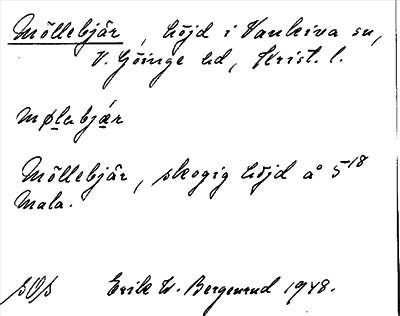 Möllebjär, höjd i Vankiva sn,
V. Göinge hd, Krist. l.
Möllebjär, skogig höjd å 5¹⁸
Mala.
Erik W. Bergenrud 1948.